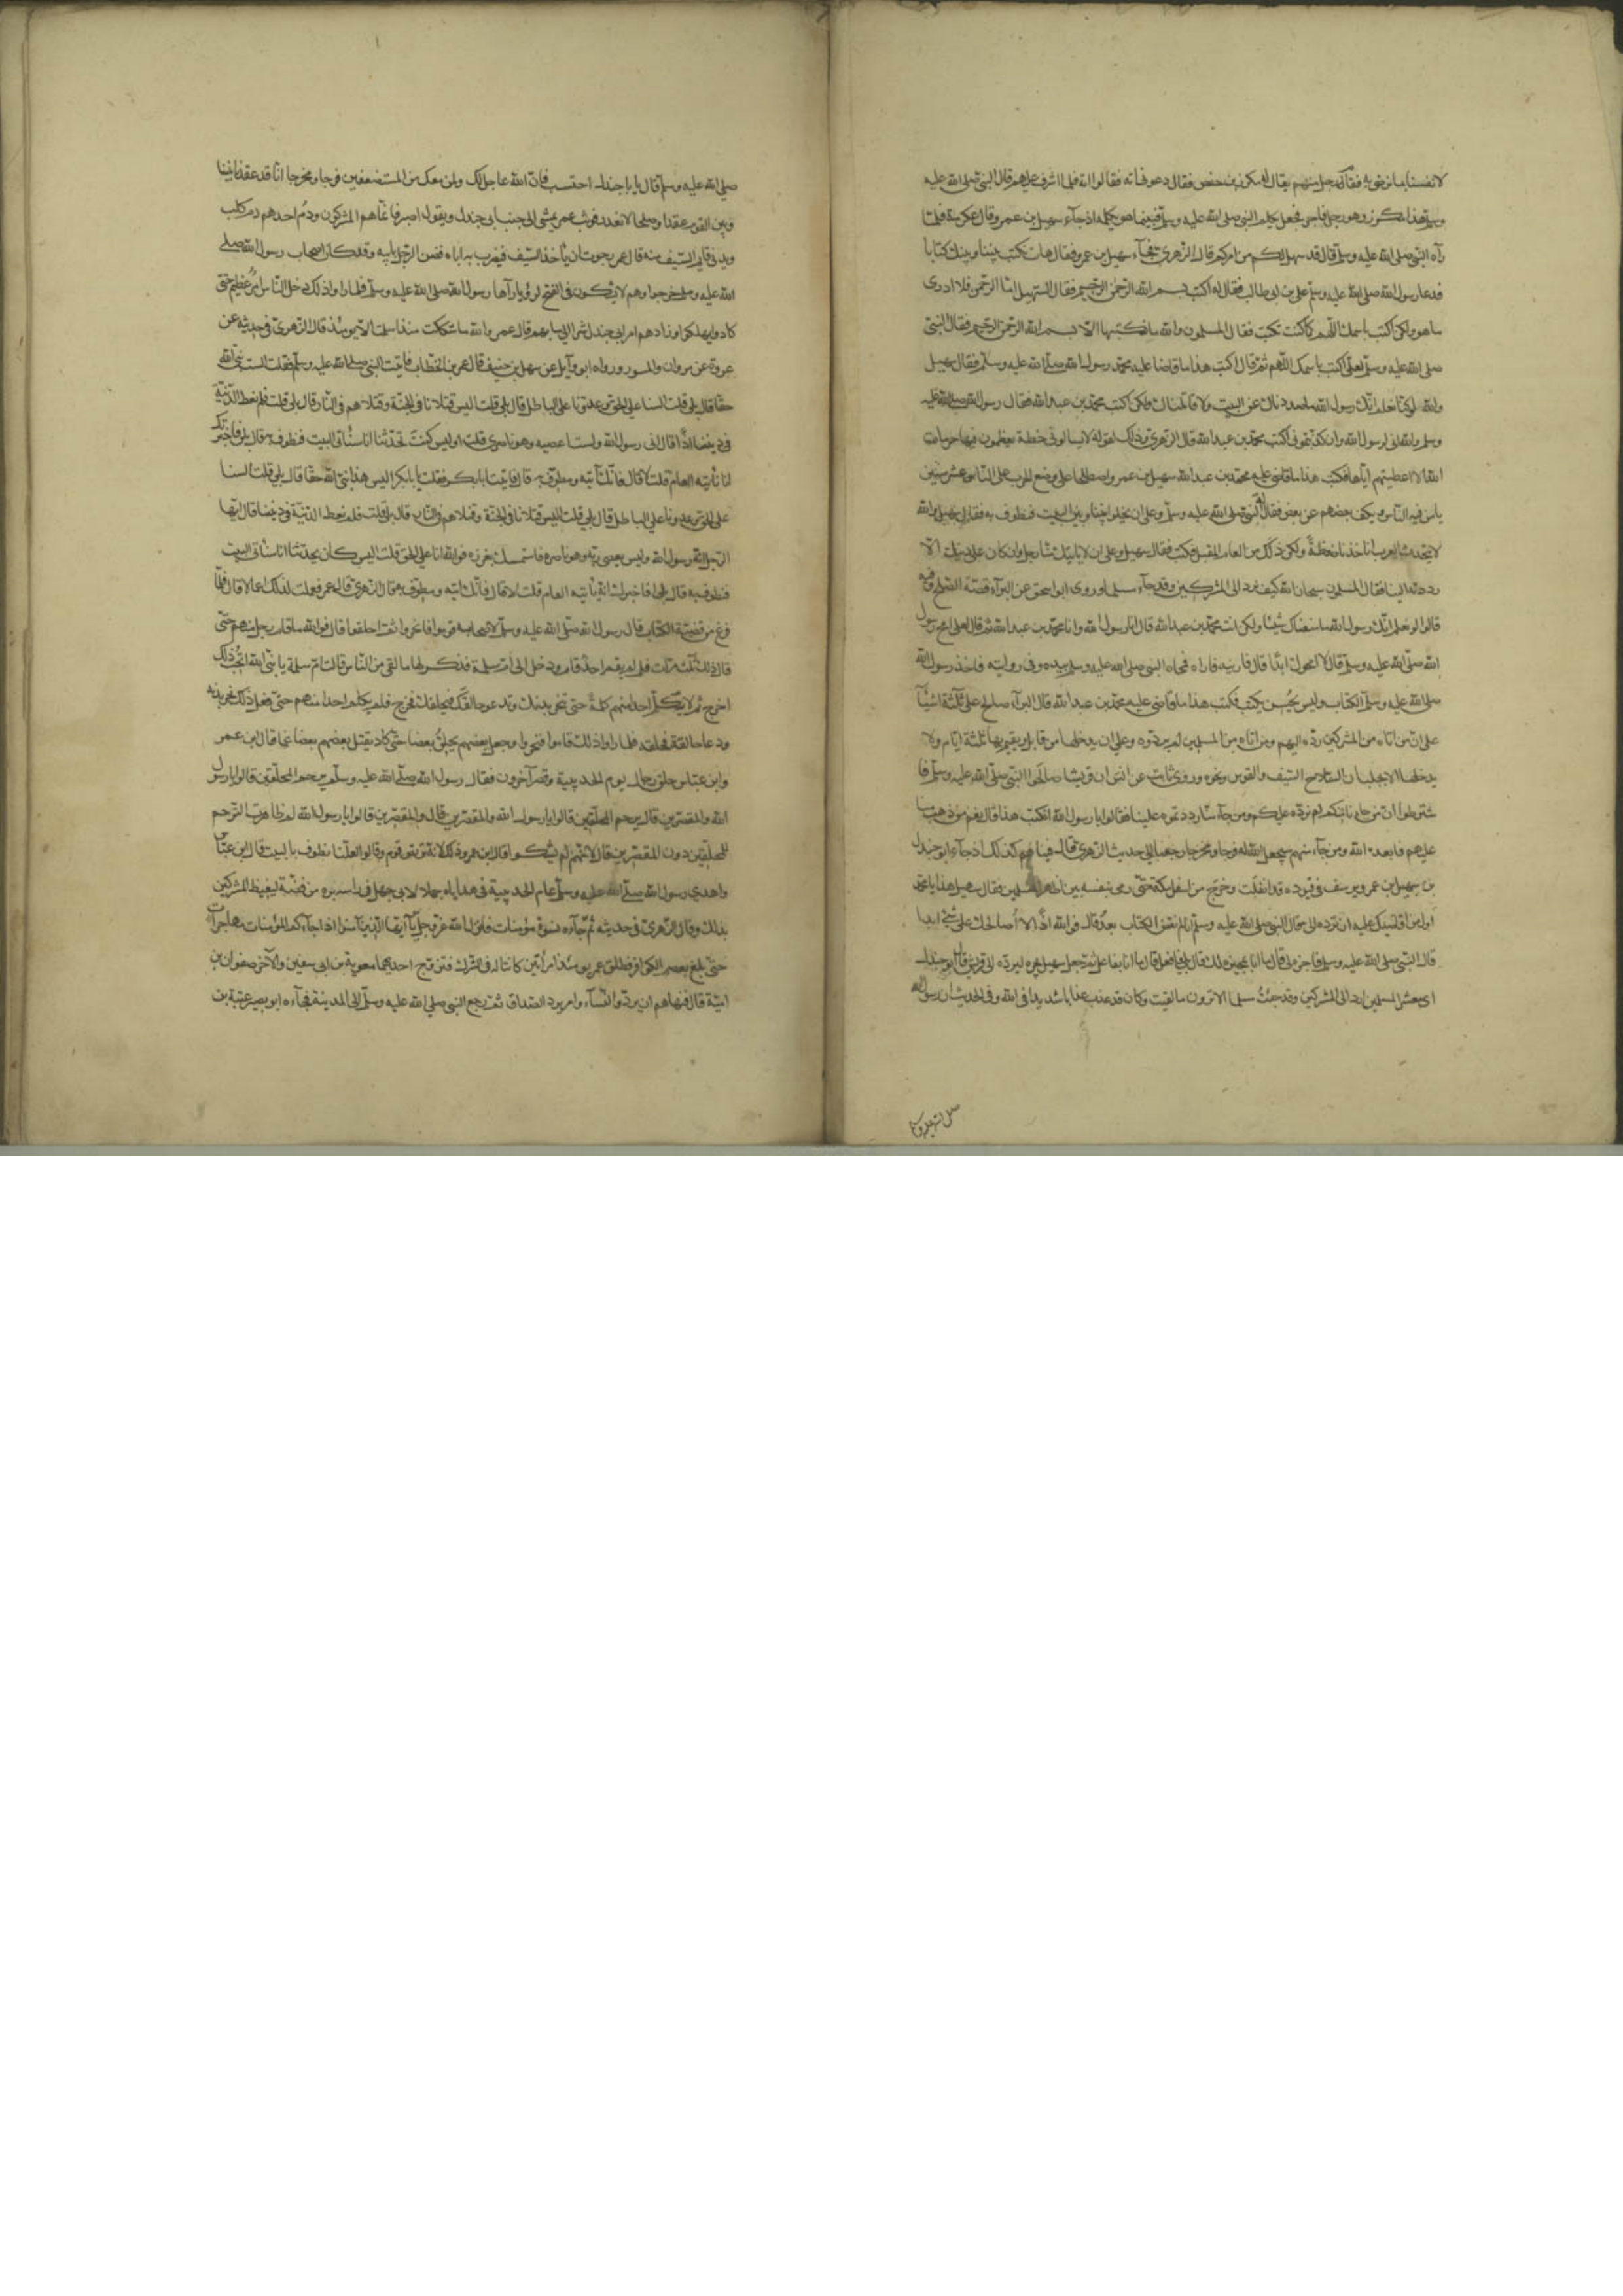 لانفسنا بما نرضى به فقام رجل منهم يقال له مكرز بن حفص فقال دعونى اته فقالوا ائته فلما اشرف عليهم قال النبى صلى الله عليه
وسلم هذا مكرز وهو رجل فاجر فجعل يكلم النبى صلى الله عليه وسلم فبينما هو يكلمه اذ جآء سهيل بن عمرو قال عكرمة فلما
رآه النبى صلى الله عليه وسلم قال قد سهل لكم من امركم قال الزهرى فجآء سهيل بن عمرو فقال هات نكتب بيننا وبينك كتابا
فدعا رسول الله صلى الله عليه وسلم على بن ابى طالب فقال له اكتب بسم الله الرحمن الرحيم فقال سهيل اما الرحمن فلا ادرى
ما هو ولكن اكتب باسمك اللهم كما كنت تكتب فقال المسلمون والله ما نكتبها الا بسم الله الرحمن الرحيم فقال النبى
صلى الله عليه وسلم لعلى اكتب باسمك اللهم ثم قال اكتب هذا ما قاضا عليه محمد رسول الله صلى الله عليه وسلم فقال سهيل
والله لو كنا نعلم انك رسول الله ما صددناك عن البيت ولا قاتلناك ولكن اكتب محمد بن عبد الله فقال رسول الله صلى الله عليه
وسلم والله انى لرسول الله وان كذبتمونى اكتب محمد بن عبد الله قال الزهرى وذلك لقوله لا يسالونى خطة يعظمون فيها حرمات
الله الا اعطيتهم اياها فكتب هذا ما قاضى عليه محمد بن عبد الله سهيل بن عمرو واصطلحا على وضع الحرب على الناس عشر سنين
يامن فيه الناس ويكف بعضهم عن بعض فقال له النبى صلى الله عليه وسلم وعلى ان يخلوا بيننا وبين البيت فنطوف به فقال سهيل والله
لا يتحدث العرب انا اخذنا ضغطة ولكن ذلك من العام المقبل فكتب فقال سهيل وعلى ان لا ياتيك منا رجل وان كان على دينك الا
رددته الينا فقال المسلمون سبحان الله كيف يرد الى المشركين وقد جآء مسلما وروى ابو اسحق عن البرآء قصة الصلح وفيه
قالوا لو نعلم انك رسول الله ما منعناك شيئا ولكن انت محمد بن عبد الله قال انا رسول الله وانا محمد بن عبد الله ثم قال لعلى امح رسول
الله صلى الله عليه وسلم قال لا امحوك ابدا قال فارنيه فاراه فمحاه النبى صلى الله عليه وسلم بيده وفى رواية فاخذ رسول الله
صلى الله عليه وسلم الكتاب وليس يحسن يكتب فكتب هذا ما قاضى عليه محمد بن عبد الله قال البرآء صالح على ثلثة اشيآء
على ان من اتاه من المشركين رده اليهم ومن اتاه من المسلمين لم يردوه وعلى ان يدخلها من قابل ويقيم بها ثلثة ايام ولا
يدخلها الا بجلبان السلاح السيف والقوس ونحوه وروى ثابت عن انس ان قريشا صالحوا النبى صلى الله عليه وسلم فا
شترطوا ان من جاءنا منكم لم نرده عليكم ومن جآء منا رددتموه علينا فقالوا يا رسول الله انكتب هذا قال نعم من ذهب منا
عليهم فابعده الله ومن جآء منهم سيجعل الله له فرجا ومخرجا رجعنا الى حديث الزهرى قال فبينا هم كذلك اذ جآء ابو جندل
بن سهيل بن عمرو يرسف فى قيوده قد انفلت وخرج من اسفل مكة حتى رمى بنفسه بين اظهر المسلمين فقال سهيل هذا يا محمد
اول من اقاضيك عليه ان ترده الى فقال النبى صلى الله عليه وسلم انا لم نقض الكتاب بعد قال فوالله اذا لا اصالحك على شئ ابدا
قال النبى صلى الله عليه وسلم فاجره لى قال ما انا بمجيزه لك قال بلى فافعل قال ما انا بفاعل ثم جعل سهيل يجره ليرده الى قريش قال ابو جندل
اى معشر المسلمين ارد الى المشركين وقد جئت مسلما الا ترون ما لقيت وكان قد عذب عذابا شديدا فى الله وفى الحديث ان رسول الله
صلى الله عليه وسلم
صلى الله عليه وسلم قال يا با جندل احتسب فان الله جاعل لك ولمن معك من المستضعفين فرجا ومخرجا انا قد عقدنا بيننا
وبين القوم عقدا وصلحا لا نغدر فوثب عمر يمشى الى جنب ابى جندل ويقول اصبر فانما هم المشركون ودم احدهم دم كلب
ويدنى قايم السيف منه قال عمر رجوت ان ياخذ السيف فيضرب به اباه فضن الرجل بابيه وقد كان اصحاب رسول الله صلى
الله عليه وسلم خرجوا وهم لا يشكون فى الفتح لرؤيا رآها رسول الله صلى الله عليه وسلم فلما راوا ذلك دخل الناس امر عظيم حتى
كادوا يهلكوا وزادهم امر ابى جندل شرا الى ما بهم قال عمر والله ما شككت منذ اسلمت الا يومئذ قال الزهرى فى حديثه عن
عروة عن مروان والمسور ورواه ابو وآيل عن سهل بن حنيف قال عمر بن الخطاب فاتيت النبى صلى الله عليه وسلم فقلت الست نبى الله
حقا قال بلى قلت السنا على الحق وعدونا على الباطل قال بلى قلت اليس قتلانا فى الجنة وقتلاهم فى النار قال بلى قلت فلم نعط الدنية
فى ديننا اذا قال انى رسول الله ولست اعصيه وهو ناصرى قلت اوليس كنت تحدثنا انا سناتى البيت فنطوف به قال بلى فاخبرتك
انا ناتيه العام قلت لا قال فانك آتيه ومطوف به قال فاتيت ابا بكر فقلت يا با بكر اليس هذا نبى الله حقا قال بلى قلت السنا
على الحق وعدونا على الباطل قال بلى قلت اليس قتلانا فى الجنة وقتلاهم فى النار قال بلى قلت فلم نعط الدنية فى ديننا قال ايها
الرجل انه رسول الله وليس يعصى ربه وهو ناصره فاستمسك بغرزه فوالله انه على الحق قلت اليس كان يحدثنا انا سناتى البيت
فنطوف به قال بلى افاخبرك انه ياتيه العام قلت لا قال فانك آتيه ومطوف به قال الزهرى قال عمر فعملت لذلك اعمالا قال فلما
فرغ من قضية الكتاب قال رسول الله صلى الله عليه وسلم لاصحابه قوموا فانحروا ثم احلقوا قال فوالله ما قام رجل منهم حتى
قال ذلك ثلث مرات فلما لم يقم احد قام ودخل الى ام سلمة فذكر لها ما لقى من الناس قالت ام سلمة يا نبى الله اتحب ذلك
اخرج ثم لا تكلم احدا منهم كلمة حتى تنحر بدنك وتدعو حالقك فيحلقك فخرج فلم يكلم احدا منهم حتى فعل ذلك نحر بدنه
ودعا حالقه فحلقه فلما راوا ذلك قاموا فنحروا وجعل بعضهم يحلق بعضا حتى كاد يقتل بعضهم بعضا غما قال ابن عمر
وابن عباس حلق رجال يوم الحديبية وقصر آخرون فقال رسول الله صلى الله عليه وسلم يرحم الله المحلقين قالوا يا رسول
الله والمقصرين قال يرحم المحلقين قالوا يا رسول الله والمقصرين قال والمقصرين قالوا يا رسول الله لم ظاهرت الترحم
للمحلقين دون المقصرين قال لانهم لم يشكوا قال ابن عمر وذلك لانه تربص قوم وقالوا لعلنا نطوف بالبيت قال ابن عباس
واهدى رسول الله صلى الله عليه وسلم عام الحديبية فى هداياه جملا لابى جهل فى راسه بره من فضة ليغيظ المشركين
بذلك وقال الزهرى فى حديثه ثم جآءه نسوة مؤمنات فانزل الله عز وجل يآ ايها الذين آمنوا اذا جآءكم المؤمنات مهاجرات
حتى بلغ بعصم الكوافر فطلق عمر يومئذ امراتين كانتا له فى الشرك فتزوج احديهما معوية بن ابى سفين والآخر صفوان بن
امية قال فنهاهم ان يردوا النسآء وامر برد الصداق ثم رجع النبى صلى الله عليه وسلم الى المدينة فجآءه ابو بصير عتبة بن